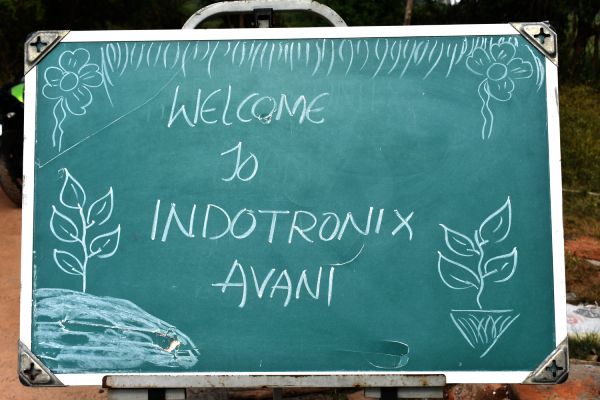 WELCOME
To
INDOTRONIX
AVANI